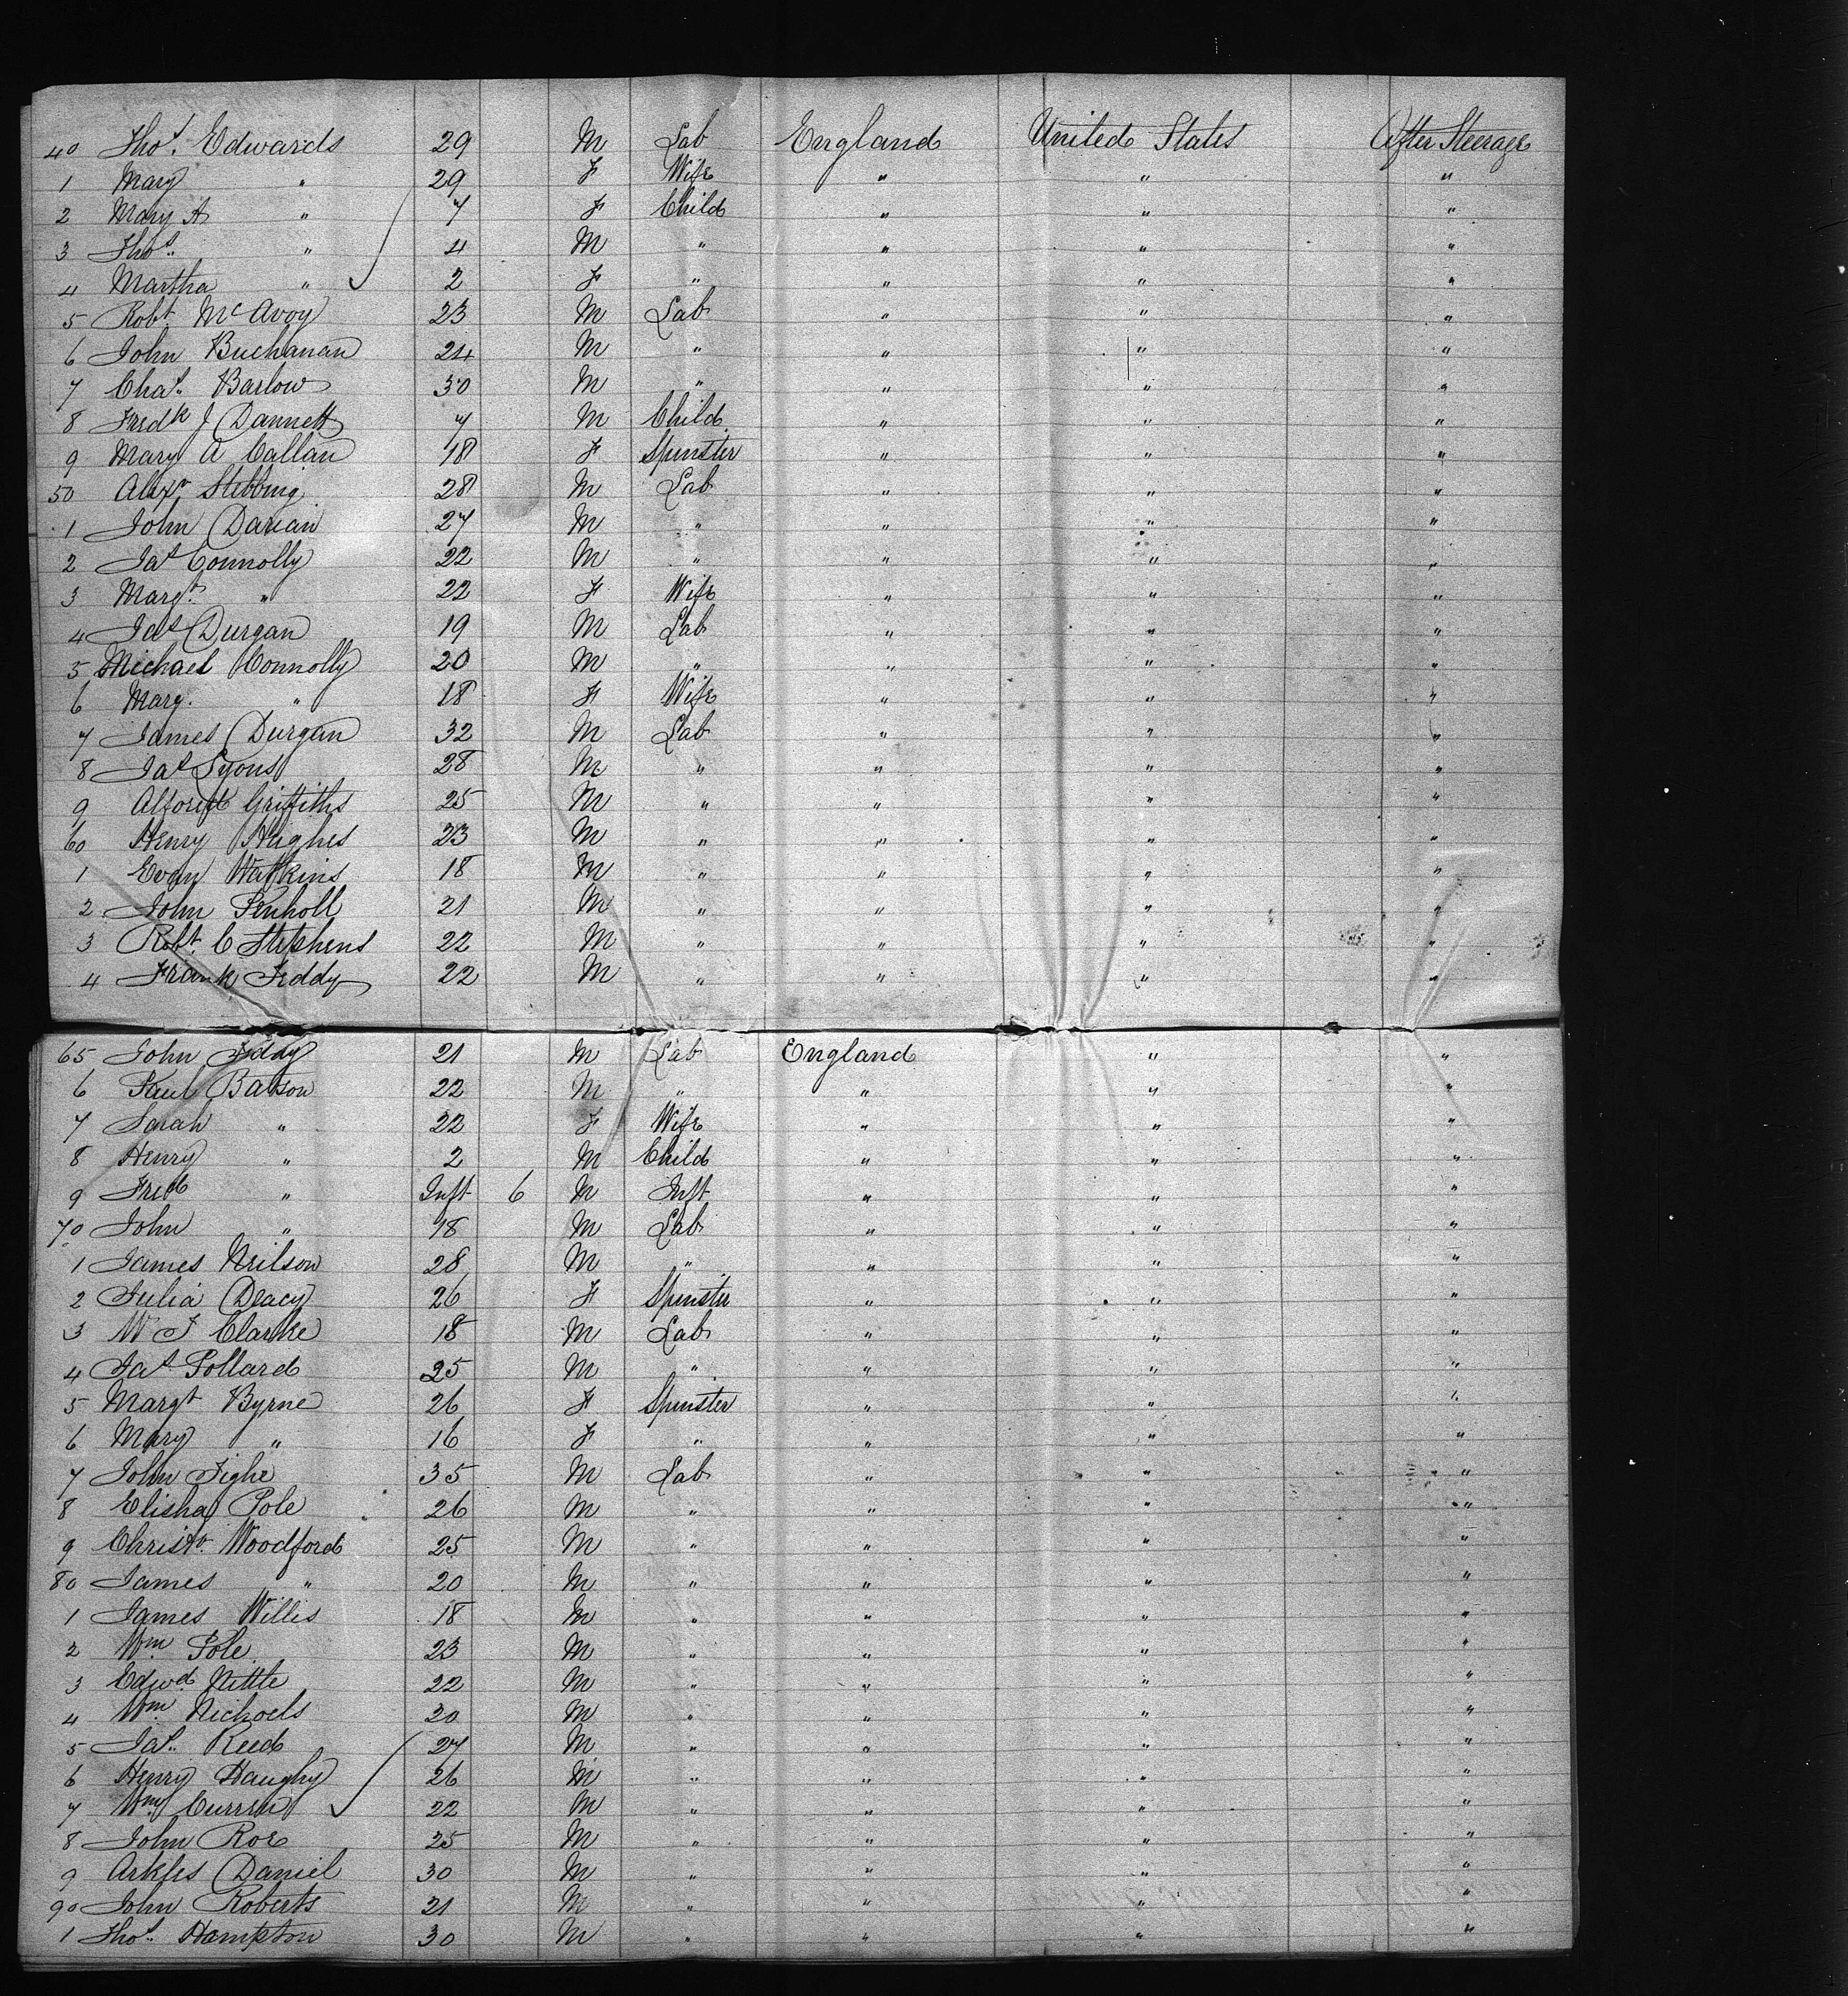 40 Thos. Edwards 29 M Lab England United States After Steerage
1 Mary " 29 F Wife " " "
2 Mary A " 7 F Child " " "
3 Thos. " 4 M " " " "
4 Martha " 2 F " " " "
5 Robt. McAvoy 23 M Lab " " "
6 John Buchanan 24 M " " " "
7 Chas. Barlow 30 M " " " "
8 Fredk J Dannett 7 M Child " " "
9 Mary A Callan 18 F Spinster " " "
50 Alexr. Stebbing 28 M Lab " " "
1 John Darian 27 M " " " "
2 Jas Connolly 22 M " " " "
3 Margt. " 22 F Wife " " "
4 Jas Durgan 19 M Lab " " "
5 Michael Connolly 20 M " " " "
6 Mary. " 18 F Wife " " "
7 James Durgan 32 M Lab " " "
8 Jas Lyons 28 M " " " "
9 Griffiths 25 M " " " "
60 Henry Hughes 23 M " " " "
1 Evan Watkins 18 M " " " "
2 John Penholl 21 M " " " "
3 Robt. C Stephens 22 M " " " "
4 Frank Feddy 22 M " " " "
65 John Feddy 21 M Lab England " "
6 Paul Batson 22 M " " " "
7 Sarah " 22 F Wife " " "
8 Henry " 2 M Child " " "
9 Fred " Inft 6 M Inft " " "
70 John " 18 M Lab " " "
1 James Neilson 28 M " " " "
2 Julia Deacy 26 F Spinster " " "
3 W J Clarke 18 M Lab " " "
4 Jas. Pollard 25 M " " " "
5 Margt Byrne 26 F Spinster " " "
6 Mary " 16 F " " " "
7 John Tighe 35 M Lab " " "
8 Elisha Pole 26 M " " " "
9 Christr. Woodford 25 M " " " "
80 James " 20 M " " " "
1 James Willis 18 M " " " "
2 Wm. Pole 23 M " " " "
3 Edwd. Nittle 22 M " " " "
4 Wm. Nichoels 20 M " " " "
5 Jas. Reed 27 M " " " "
6 Henry Haughy 26 M " " " "
7 Wm. Curren 22 M " " " "
8 John Roe 25 M " " " "
9 Arkles Daniel 30 M " " " "
90 John Roberts 21 M " " " "
1 Thos. Hampton 30 M " " " "